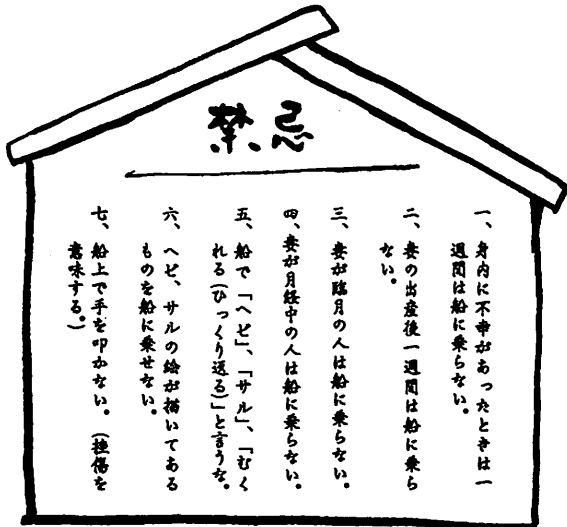 禁忌
一、身内に不幸があったときは一
週間は船に乗らない。
二、妻の出産後一週間は船に乗ら
ない。
三、妻が臨月の人は船に乗らない。
四、妻が月経中の人は船に乗らない。
五、船で「ヘビ」、「サル」、「むく
れる(ひっくり返る)」と言うな。
六、ヘビ、サルの絵が描いてある
ものを船に乗せない。
七、船上で手を叩かない。(挫傷を
意味する。)